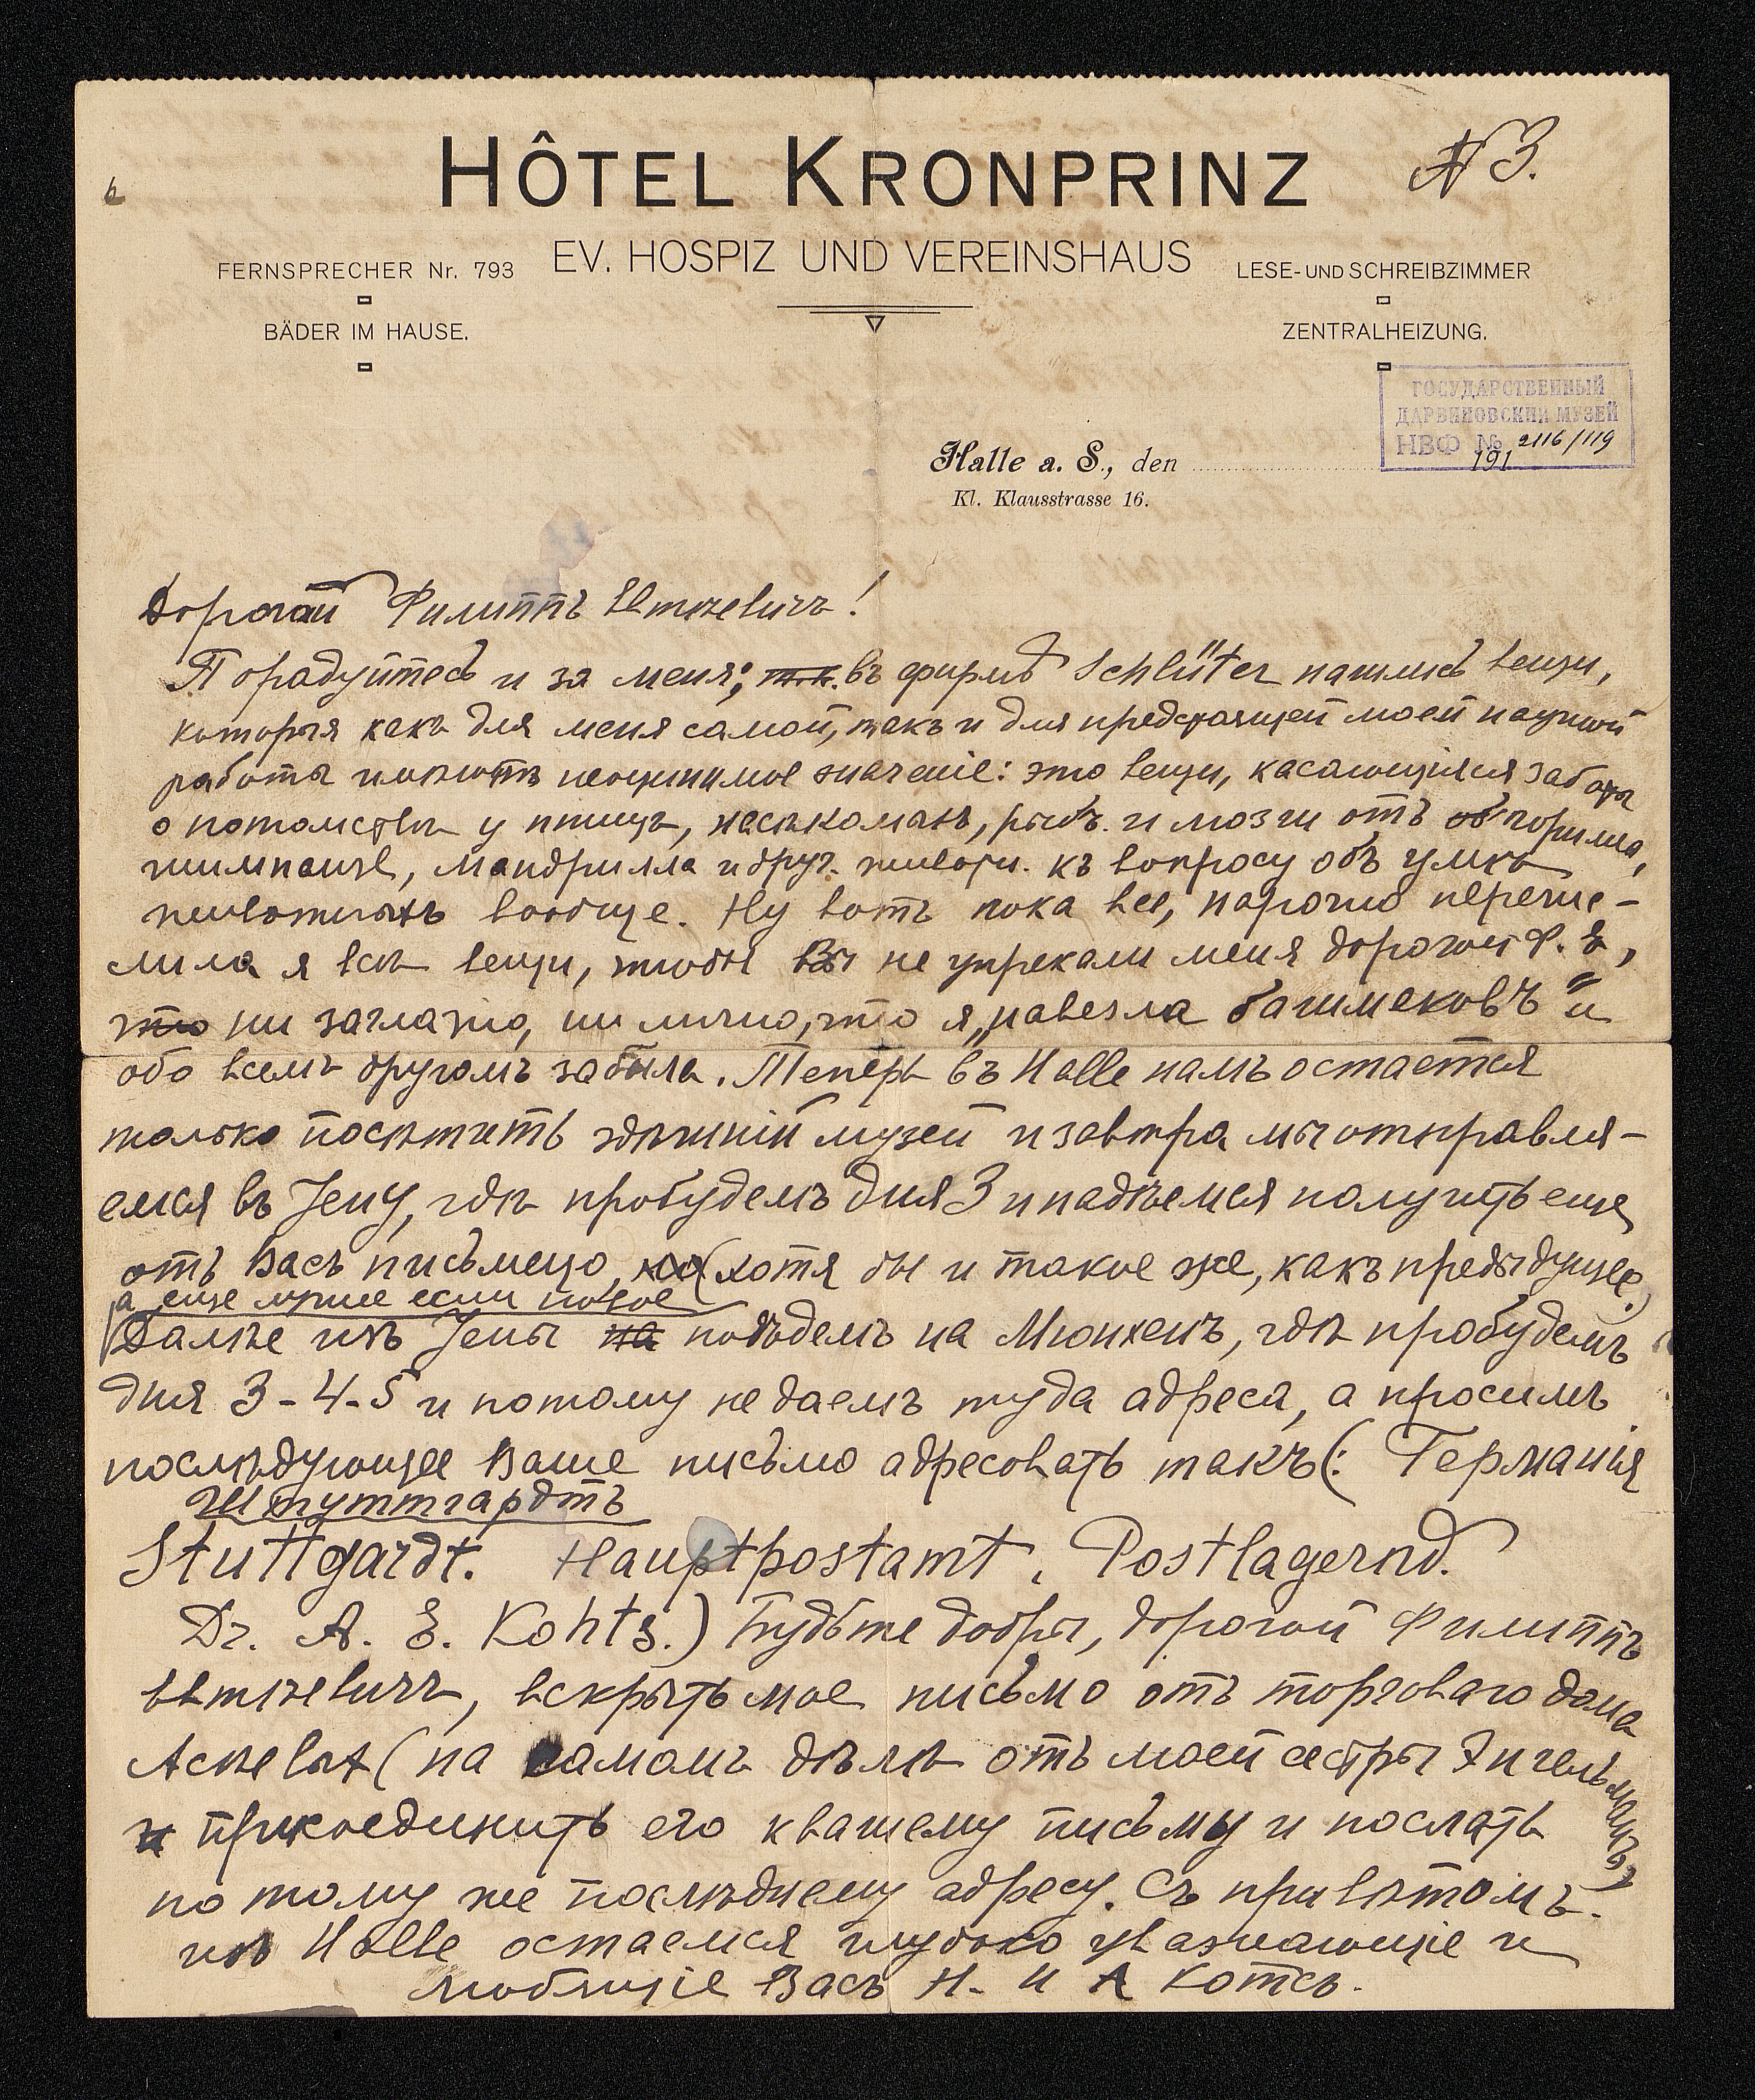 HÔTEL KRONPRINZ
N 3.
EV. HOSPIZ UND VEREINSHAUS
FERNSPRECHER Nr. 793
BÄDER IM HAUSE.
LESE- UND SCHREIBZIMMER
ZENTRALHEIZUNG.
ГОСУДАРСТВЕННЫЙ
ДАРВИНОВСКИЙ МУЗЕЙ
НВФ № 2116/119
Halle a. S., den 191
Kl. Klausstrasse 16.
Дорогой Филиппъ Евтхевичъ!
Порадуйтесь и за меня; т.к. въ фирмѣ Schlüter нашлись вещи,
которыя какъ для меня самой, такъ и для предстоящей моей научной
работы имѣютъ неоцѣнимое значеніе: это вещи, касающіяся заботы
о потомствѣ у птицъ, насѣкомыхъ, рыбъ. и мозги отъ гориллы,
шимпанзе, мандрилла и друг. животн. къ вопросу объ умѣ
животныхъ вообще. Ну вотъ пока все, нарочно перечи-
слила я всѣ вещи, чтобы Вы не упрекали меня дорогой Ф. Е,
что ни заглазно, ни лично, что я „навезла башмаковъ" и
обо всемъ другомъ забыла. Теперь въ Halle намъ остается
только посѣтить здѣшній музей и завтра мы отправля-
емся въ Jену, гдѣ пробудемъ дня 3 и надѣемся получить еще
отъ Васъ письмецо, (хотя бы и такое же, какъ предыдущее,)
а еще лучше если новое
Далѣе изъ Jены на поѣдемъ на Мюнхенъ, гдѣ пробудемъ
дня 3-4-5 и потому не даемъ туда адреса, а просимъ
послѣдующее Ваше письмо адресовать такъ (: Германія
Штуттгардтъ
Stuttgardt. Hauptpostamt, Postlagernd.
Dr. A. E. Kohts.) Будьте добры, дорогой Филиппъ
Евтхевичъ, вскрыть мое письмо отъ торговаго дома
(на самомъ дѣлѣ отъ моей сестры Энгельманъ)
и присоединить его к вашему письму и послать
по тому же послѣднему адресу. Съ привѣтомъ.
изъ Halle остаемся глубоко уважающіе и
любящіе Васъ Н. и А Котсъ.